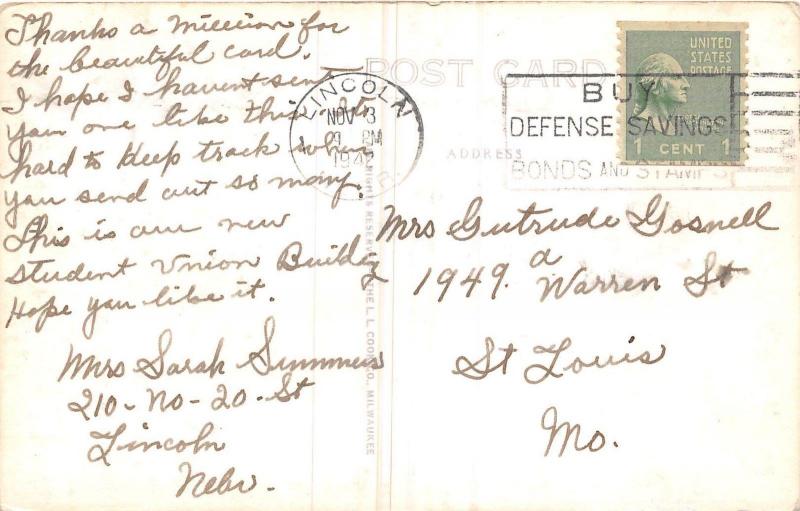 Thanks a million for
the beautiful card.
I hope I havent sent
you one like this. Its
hard to keep track when
you send out so many.
This is our new
student Union Building
Hope you like it.
Mrs Sarah Summers
210-No-20-St
Lincoln
Nebr.
POST CARD
ADDRESS
LINCOLN
NOV 3
PM
NEBR.
BUY
DEFENSE SAVINGS
BONDS AND STAMPS
UNITED
STATES
POSTAGE
1 CENT 1
RIGHTS RESERVED THE L. L. COOK CO., MILWAUKEE
Mrs Gutrude Gosnell
1949. a Warren St
St Louis
Mo.